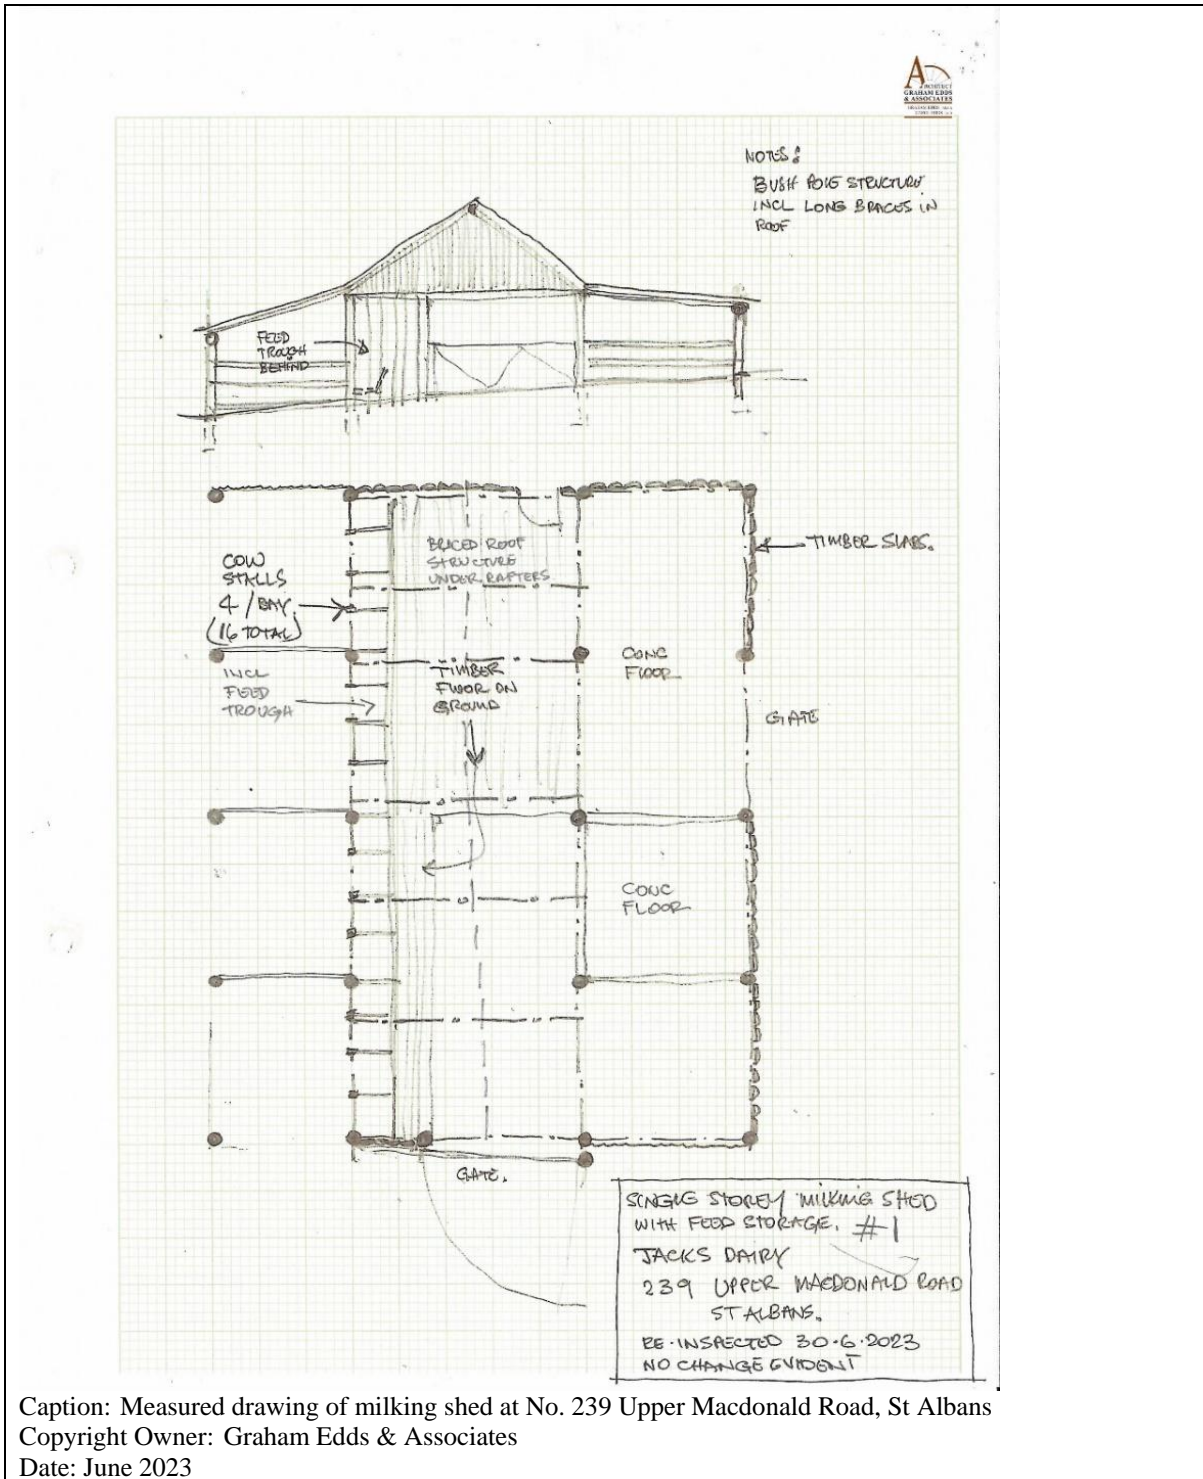 ARCHITECT
GRAHAM EDDS
& ASSOCIATES
NOTES:
BUSH POLE STRUCTURE
INCL LONG BRACES IN
ROOF
FEED
TROUGH
BEHIND
BRACED ROOF
STRUCTURE
UNDER RAFTERS
TIMBER SLABS.
COW
STALLS
4/BAY
(16 TOTAL)
INCL
FEED
TROUGH
TIMBER
FLOOR ON
GROUND
CONC
FLOOR
GATE
CONC
FLOOR
GATE.
SINGLE STOREY MILKING SHED
WITH FEED STORAGE. #1
JACKS DAIRY
239 UPPER MACDONALD ROAD
ST ALBANS.
RE-INSPECTED 30·6·2023
NO CHANGE EVIDENT
Caption: Measured drawing of milking shed at No. 239 Upper Macdonald Road, St Albans
Copyright Owner: Graham Edds & Associates
Date: June 2023